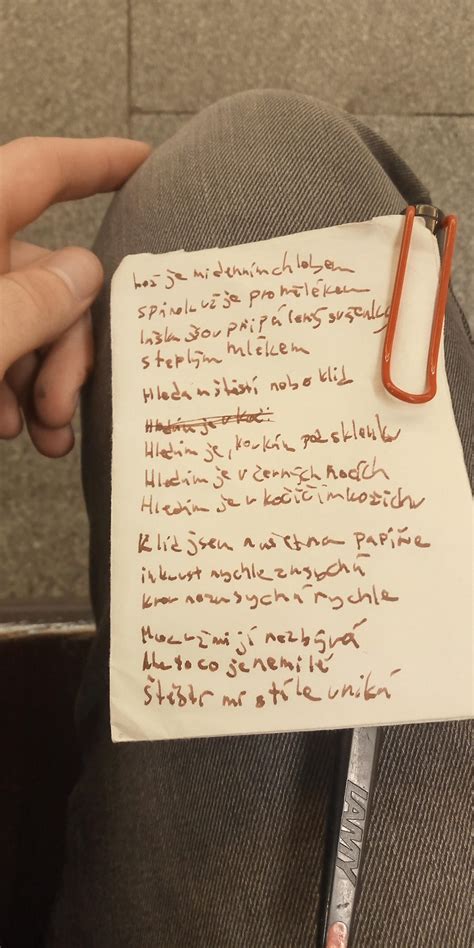 hož je mi denním chlebem
spánek už je pro mě lékem
láska jsou připálený sušenky
s teplým mlékem
Hledám štěstí nebo klid
Hledám je v
Hledám je, koukám pod sklenku
Hledám je v černých nocích
Hledám je v kočičím kožichu
Klid jsem našel na papíře
inkoust rychle zasychá
krev nezasychá rychle
Moc už mi jí nezbývá
Ale to co je nemilé
Štěstí mi stále uniká
LAMY